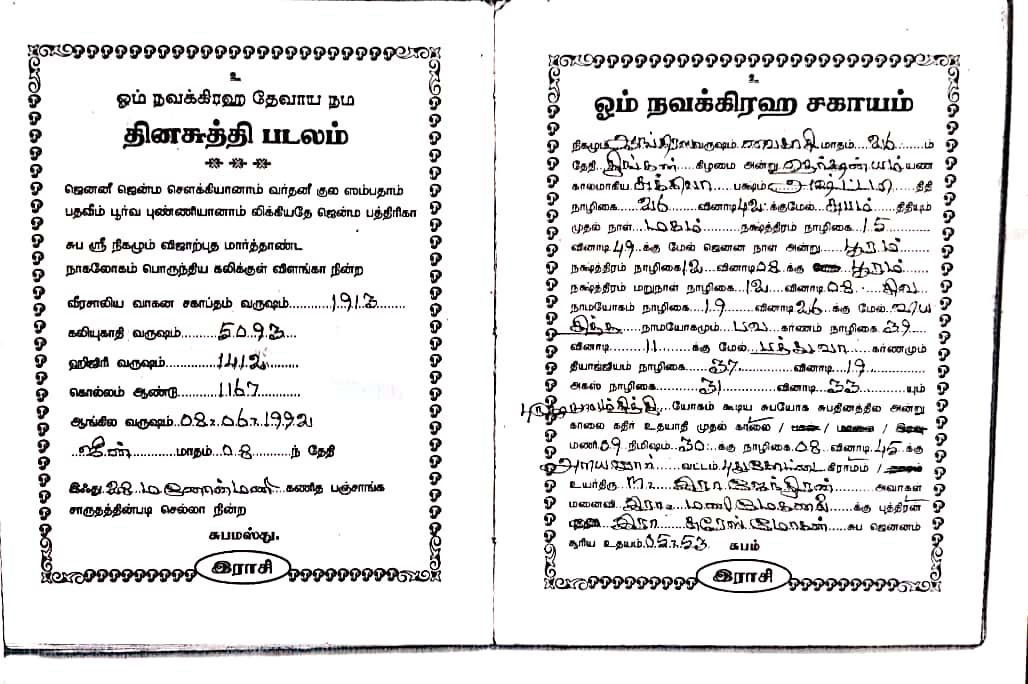 உ
ஓம் நவக்கிரஹ தேவாய நம
தினசுத்தி படலம்
ஜெனனீ ஜென்ம சௌக்கியானாம் வர்தனீ குல ஸம்பதாம்
பதவீம் பூர்வ புண்ணியானாம் லிக்கியதே ஜென்ம பத்திரிகா
சுப ஸ்ரீ நிகமும் விஜாற்புத மார்த்தாண்ட
நாகலோகம் பொருந்திய கலிக்குள் விளங்கா நின்ற
வீரசாலிய வாகன சகாப்தம் வருஷம்............1913
கலியுகாதி வருஷம்.........5093
ஹிஜிரி வருஷம்............1412
கொல்லம் ஆண்டு........1167
ஆங்கில வருஷம்..08.06.1992
ஜீன்..........மாதம்..08........ந் தேதி
இஃது 28 ம கணித பஞ்சாங்க
சாருதத்தின்படி செல்லா நின்ற
சுபமஸ்து.
இராசி
உ
ஓம் நவக்கிரஹ சகாயம்
நிகமும் ஆங்கிரஸ வருஷம் வைகாசி மாதம்...26.......ம்
தேதி திங்கள்.....கிழமை அன்று யண
காலமாகிய சுக்கிலா......பக்ஷம் அஷ்டமி......திதி
நாழிகை.....26......வினாடி 42.க்குமேல் சுபம்.......திதியும்
முதல் நாள்....மகம்......நக்ஷத்திரம் நாழிகை..15
வினாடி 49..க்கு மேல் ஜெனன நாள் அன்று......பூரம்
நக்ஷத்திரம் நாழிகை 12...வினாடி 08..க்கு பூரம்
நக்ஷத்திரம் மறுநாள் நாழிகை...12...வினாடி 08
நாமயோகம் நாழிகை..19......வினாடி 26..க்கு மேல்
சித்த......நாமயோகமும்....பவ....கர்ணம் நாழிகை 39
வினாடி.......11.......க்கு மேல்...... கர்ணமும்
தியாஜ்ஜியம் நாழிகை.......37.............வினாடி...19
அகஸ் நாழிகை........31...........வினாடி....33......யும்
யோகம் கூடிய சுபயோக சுபதினத்தில் அன்று
காலை கதிர் உதயாதி முதல் காலை / பகல் / மாலை / இரவு
மணி 09 நிமிஷம்..30..க்கு நாழிகை 08 வினாடி 45.க்கு
வட்டம் புதுகோட்டை கிராமம் /
உயர்திரு...M. இரா இஜந்திரன்..........அவர்கள்
மனைவி இரா. மணிமேகலை......க்கு புத்திரன்
இரா சுரேஸ் மோகன்.....சுப ஜெனனம்
சூரிய உதயம் 05.53. சுபம்
இராசி